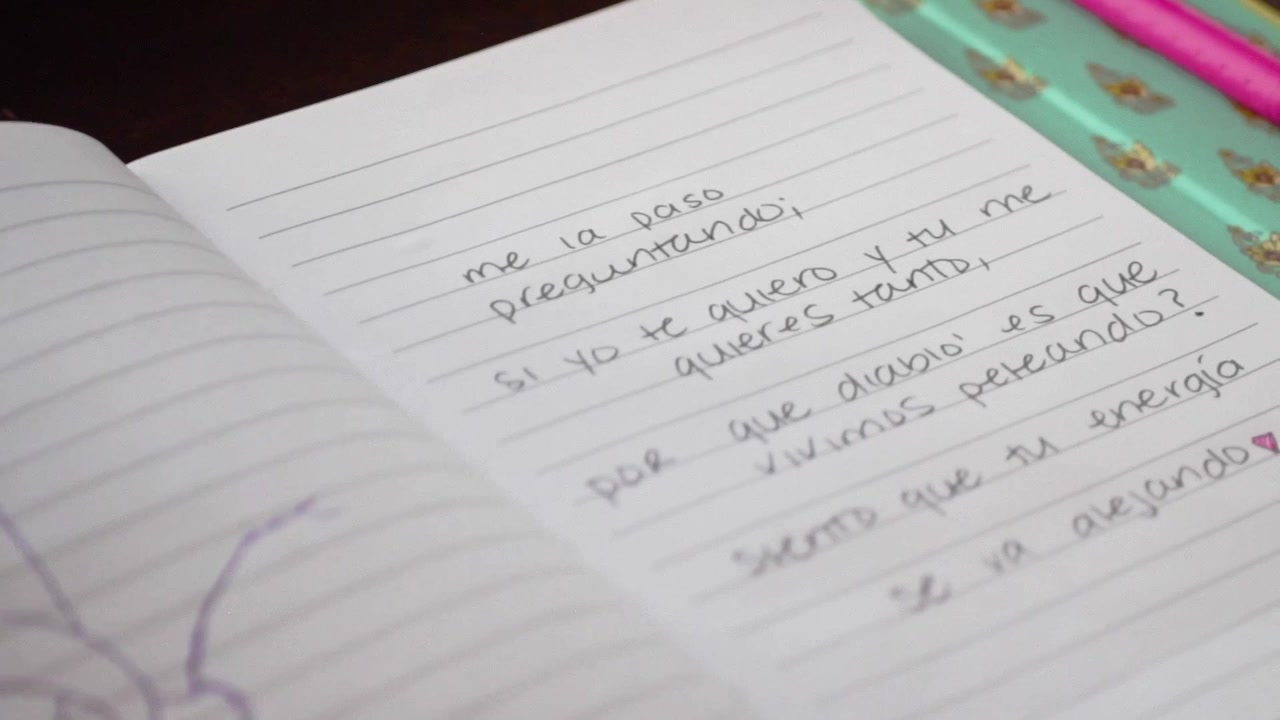 me la paso
preguntando;
si yo te quiero y tu me
quieres tanto,
por que diablo' es que
vivimos peleando?
siento que tu energía
se va alejando